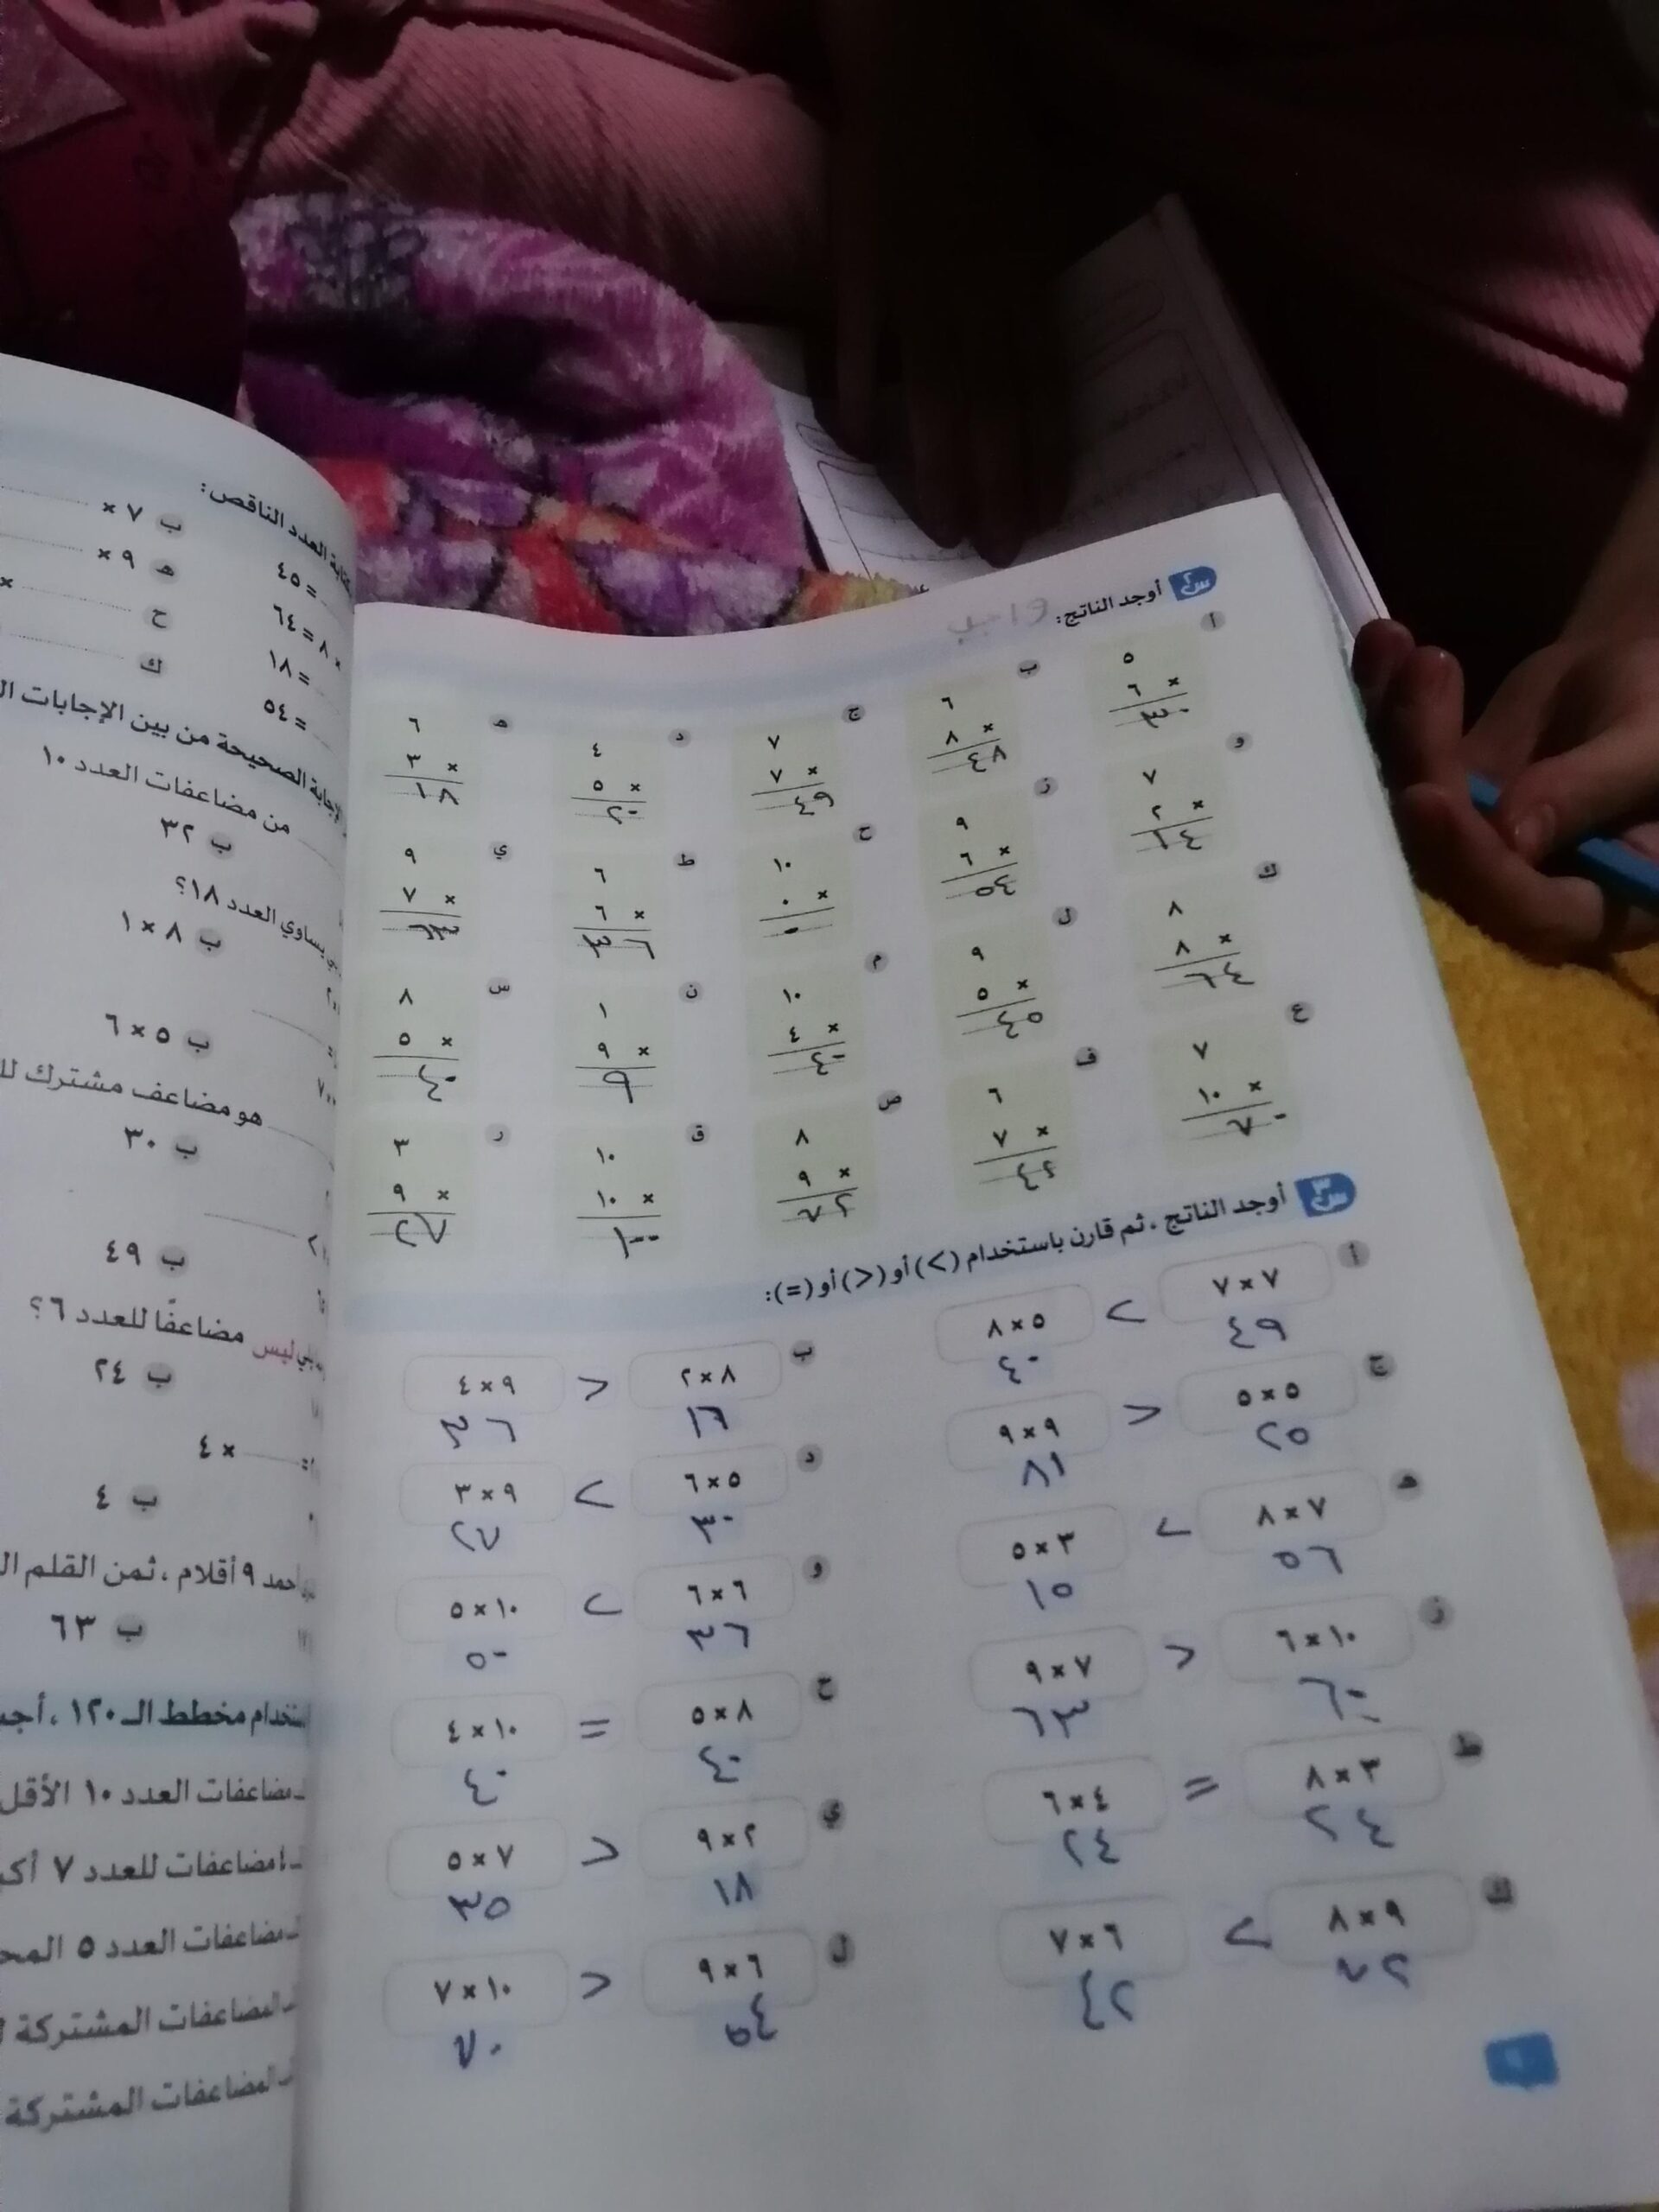 س٢ أوجد الناتج: واجب
أ ب ج د هـ
٥ ٦ ٧ ٤ ٦
× ٦ × ٨ × ٧ × ٥ × ٣
٣٠ ٤٨ ٤٩ ٢٠ ١٨
و ز ح ط ي
٧ ٩ ١٠ ٦ ٩
× ٢ × ٦ × ٠ × ٦ × ٧
١٤ ٥٤ ٠ ٣٦ ٦٣
ك ل م ن س
٨ ٩ ١٠ ١ ٨
× ٨ × ٥ × ٤ × ٩ × ٥
٦٤ ٤٥ ٤٠ ٩ ٤٠
ع ف ص ق ر
٧ ٦ ٨ ١٠ ٣
× ١٠ × ٧ × ٩ × ١٠ × ٩
٧٠ ٤٢ ٧٢ ١٠٠ ٢٧
س٣ أوجد الناتج ، ثم قارن باستخدام (>) أو (<) أو (=):
أ ٧ × ٧ > ٥ × ٨ ب ٨ × ٢ < ٩ × ٤
٤٩ ٤٠ ١٦ ٣٦
ج ٥ × ٥ < ٩ × ٩ د ٥ × ٦ > ٩ × ٣
٢٥ ٨١ ٣٠ ٢٧
هـ ٧ × ٨ > ٣ × ٥ و ٦ × ٦ > ١٠ × ٥
٥٦ ١٥ ٣٦ ٥٠
ز ١٠ × ٦ < ٧ × ٩ ح ٨ × ٥ = ١٠ × ٤
٦٠ ٦٣ ٤٠ ٤٠
ط ٣ × ٨ = ٤ × ٦ ي ٢ × ٩ < ٧ × ٥
٢٤ ٢٤ ١٨ ٣٥
ك ٩ × ٨ > ٦ × ٧ ل ٦ × ٩ < ١٠ × ٧
٧٢ ٤٢ ٥٤ ٧٠
٩
العدد الناقص:
= ٤٥ ب ٧ ×
× ٨ = ٦٤ هـ ٩ ×
= ١٨ ح ×
= ٥٤ ك
الصحيحة من بين الإجابات
من مضاعفات العدد ١٠
ب ٣٢
يساوي العدد ١٨؟
ب ٨ × ١
ب ٥ × ٦
هو مضاعف مشترك
ب ٣٠
ب ٤٩
ليس مضاعفًا للعدد ٦؟
ب ٢٤
× ٤
ب ٤
أحمد ٩ أقلام ، ثمن القلم
ب ٦٣
مخطط الـ ١٢٠ ، أجب
مضاعفات العدد ١٠ الأقل
مضاعفات للعدد ٧
مضاعفات العدد ٥
المضاعفات المشتركة
المضاعفات المشتركة